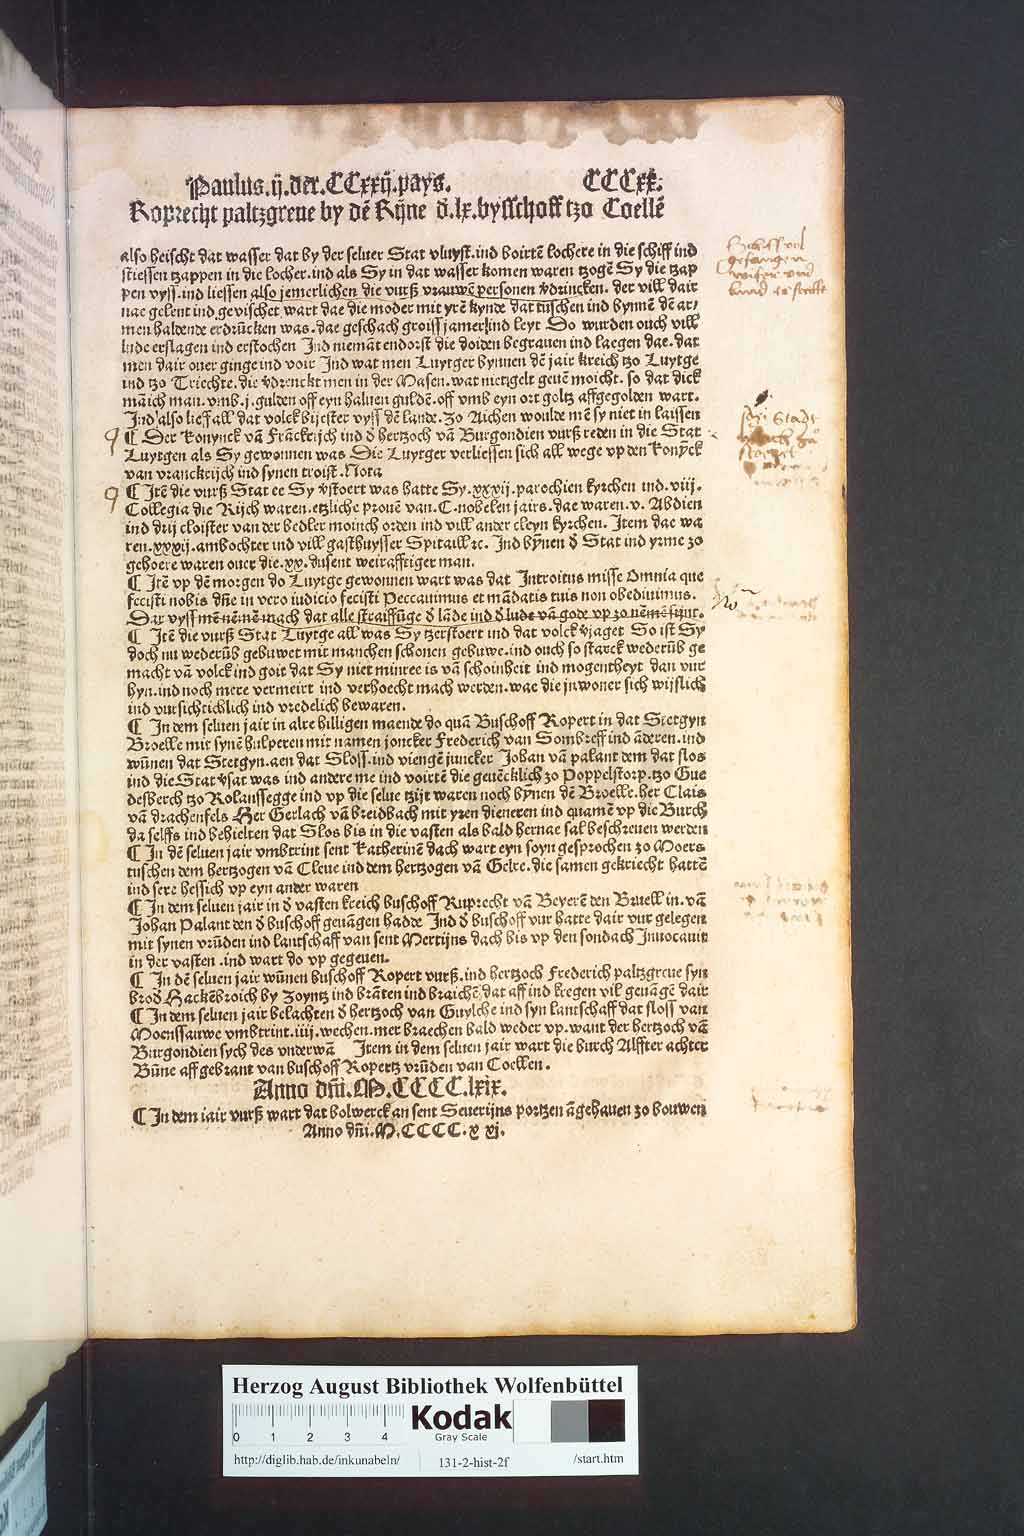 Paulus.ij.der.CCxxij.pays. CCCxx.
Roprecht paltzgreue by dē Rijne d̄.lx.bysschoff tzo Coellē
also heischt dat wasser dat by der seluer Stat vluyst.ind boirtē lochere in die schiff ind
stiessen tzappen in die locher.ind als Sy in dat wasser komen waren tzogē Sy die tzap
pen vyss.ind liessen also jemerlichen die vurß vrauwē personen v̄drincken. der vill dair
nae gelent ind geuischet wart dae die moder mit yrē kynde dat tuschen ind bynnē dē ar/
men haldende erdrūcken was.dae geschach groiss jamer ind leyt So wurden ouch vill
lude erslagen ind erstochen Ind niemāt endorst die doiden begrauen ind laegen dae.dat
men dair ouer ginge ind voir Ind wat men Luytger bynnen dē jair kreich tzo Luytge
ind tzo Triechte.die v̄drenckt men in der Masen.wat niet gelt geuē moicht. so dat dick
māich man.vmb.j.gulden off eyn haluen guldē.off vmb eyn ort goltz affgegolden wart.
Ind also lieff all dat volck bijester vyss dē lande. Zo Aichen woulde mē sy niet in laissen
¶ Der Konynck vā Franckrijch ind d̄ hertzoch vā Burgondien vurß reden in die Stat
Luytgen als Sy gewonnen was Die Luytger verliessen sich all wege vp den konȳck
van vranckrijch ind synen troist. Nota
¶ Itē die vurß Stat ee Sy v̄stoert was hatte Sy.xxxij.parochien kyrchen ind.viij.
Collegia die Rijch waren.etzliche prouē van.C.nobelen jairs.dae waren.v. Abdien
ind drij cloister van der bedler moinch orden ind vill ander cleyn kyrchen. Item dae wa
ren.xxxij.ambochter ind vill gasthuysser Spitaill ꝛc. Ind bȳnen d̄ Stat ind yrme zo
gehoere waren ouer die.xx.dusent weirafftiger man.
¶ Itē vp dē morgen do Luytge gewonnen wart was dat Introitus misse Omnia que
fecisti nobis dn̄e in vero iudicio fecisti Peccauimus et mādatis tuis non obediuimus.
Dar vyss mē nēmē mach dat alle straiffūge d̄ lāde ind d̄ lude vā gode vp zo nēmē synt.
¶ Itē die vurß Stat Luytge all was Sy tzerstoert ind dat volck v̄jaget So ist Sy
doch nu wederūb gebuwet mit manchen schonen gebuwe.ind ouch so starck wederūb ge
macht vā volck ind goit dat Sy niet minree is vā schoinheit ind mogentheyt dan vur
hyn.ind noch mere vermeirt ind verhoecht mach werden.wae die jnwoner sich wijslich
ind vursichtichlich ind vredelich bewaren.
¶ In dem seluen jair in alre hilligen maende do quā Buschoff Ropert in dat Stetgyn
Broelle mit synē hulperen mit namen joncker Frederich van Sombreff ind āderen.ind
wūnen dat Stetgyn.aen dat Sloss.ind viengē juncker Johan vā palant dem dat slos
ind die Stat v̄sat was ind andere me ind voirtē die geuēcklich zo Poppelstorp.tzo Gue
desberch tzo Rolanssegge ind vp die selue tzijt waren noch bȳnen dē Broelle.her Clais
vā drachenfels Her Gerlach vā breidbach mit yren dieneren ind quamē vp die Burch
da selffs ind behielten dat Slos bis in die vasten als bald hernae sal beschreuen werden
¶ In dē seluen jair vmbtrint sent Katherinē dach wart eyn soyn gesprochen zo Moers
tuschen dem hertzogen vā Cleue ind dem hertzogen vā Gelre.die samen gekriecht hattē
ind sere hessich vp eyn ander waren
¶ In dem seluen jair in d̄ vasten kreich buschoff Ruprecht vā Beyerē den Bruell in.vā
Johan Palant den d̄ buschoff geuāgen hadde Ind d̄ buschoff vur hatte dair vur gelegen
mit synen vrūden ind lantschaff van sent Mertijns dach bis vp den sondach Inuocauit
in der vasten .ind wart do vp gegeuen.
¶ In dē seluen jair wūnen buschoff Ropert vurß.ind hertzoch Frederich paltzgreue syn
brod̄ Hackēbroich by Zoyntz ind brāten ind braichē dat aff ind kregen vil geuāgē dair
¶ In dem seluen jair belachten d̄ hertzoch van Guylche ind syn lantschaff dat sloss van
Moenssauwe vmbtrint.iiij.wechen.mer braechen bald weder vp.want der hertzoch vā
Burgondien sych des vnderwā Item in dem seluen jair wart die burch Alffter achter
Būne aff gebrant van buschoff Ropertz vrūden van Coellen.
Anno dn̄i.M.CCCC.lxix.
¶ In dem iair vurß wart dat bolwerck an sent Seuerijns portzen āgehauen zo bouwen
Anno dn̄i.M.CCCC.xxj.
Herzog August Bibliothek Wolfenbüttel
0 1 2 3 4
Kodak
Gray Scale
http://diglib.hab.de/inkunabeln/ 131-2-hist-2f /start.htm